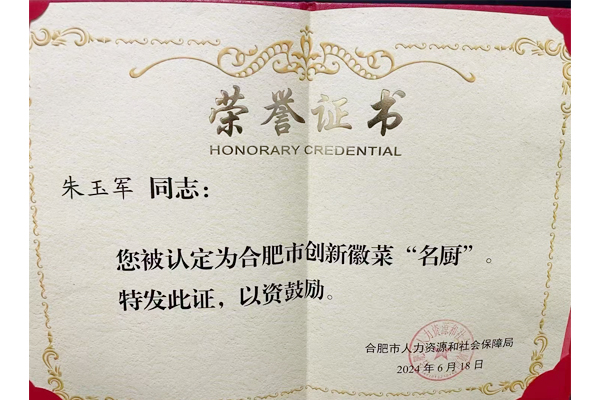 荣誉证书
HONORARY CREDENTIAL
朱玉军 同志：
您被认定为合肥市创新徽菜“名厨”。
特发此证，以资鼓励。
合肥市人力资源和社会保障局
2024年6月18日